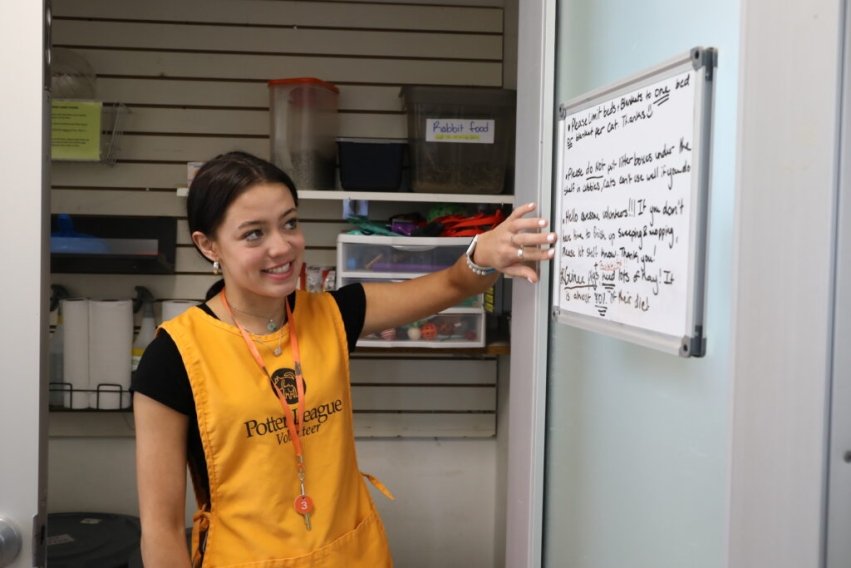 Rabbit food
Potter League
Volunteer
3
• Please limit beds + Blankets to one bed
blanket per cat. Thanks!
• Please do NOT put litterboxes under the
shelf in cubbies, cats can't use well if you do
• Hello awesome volunteers!!! If you don't
have time to finish up sweeping & mopping,
Please let staff know. Thank you!
Guinea pigs need lots of Hay! It
is almost 90% of their diet